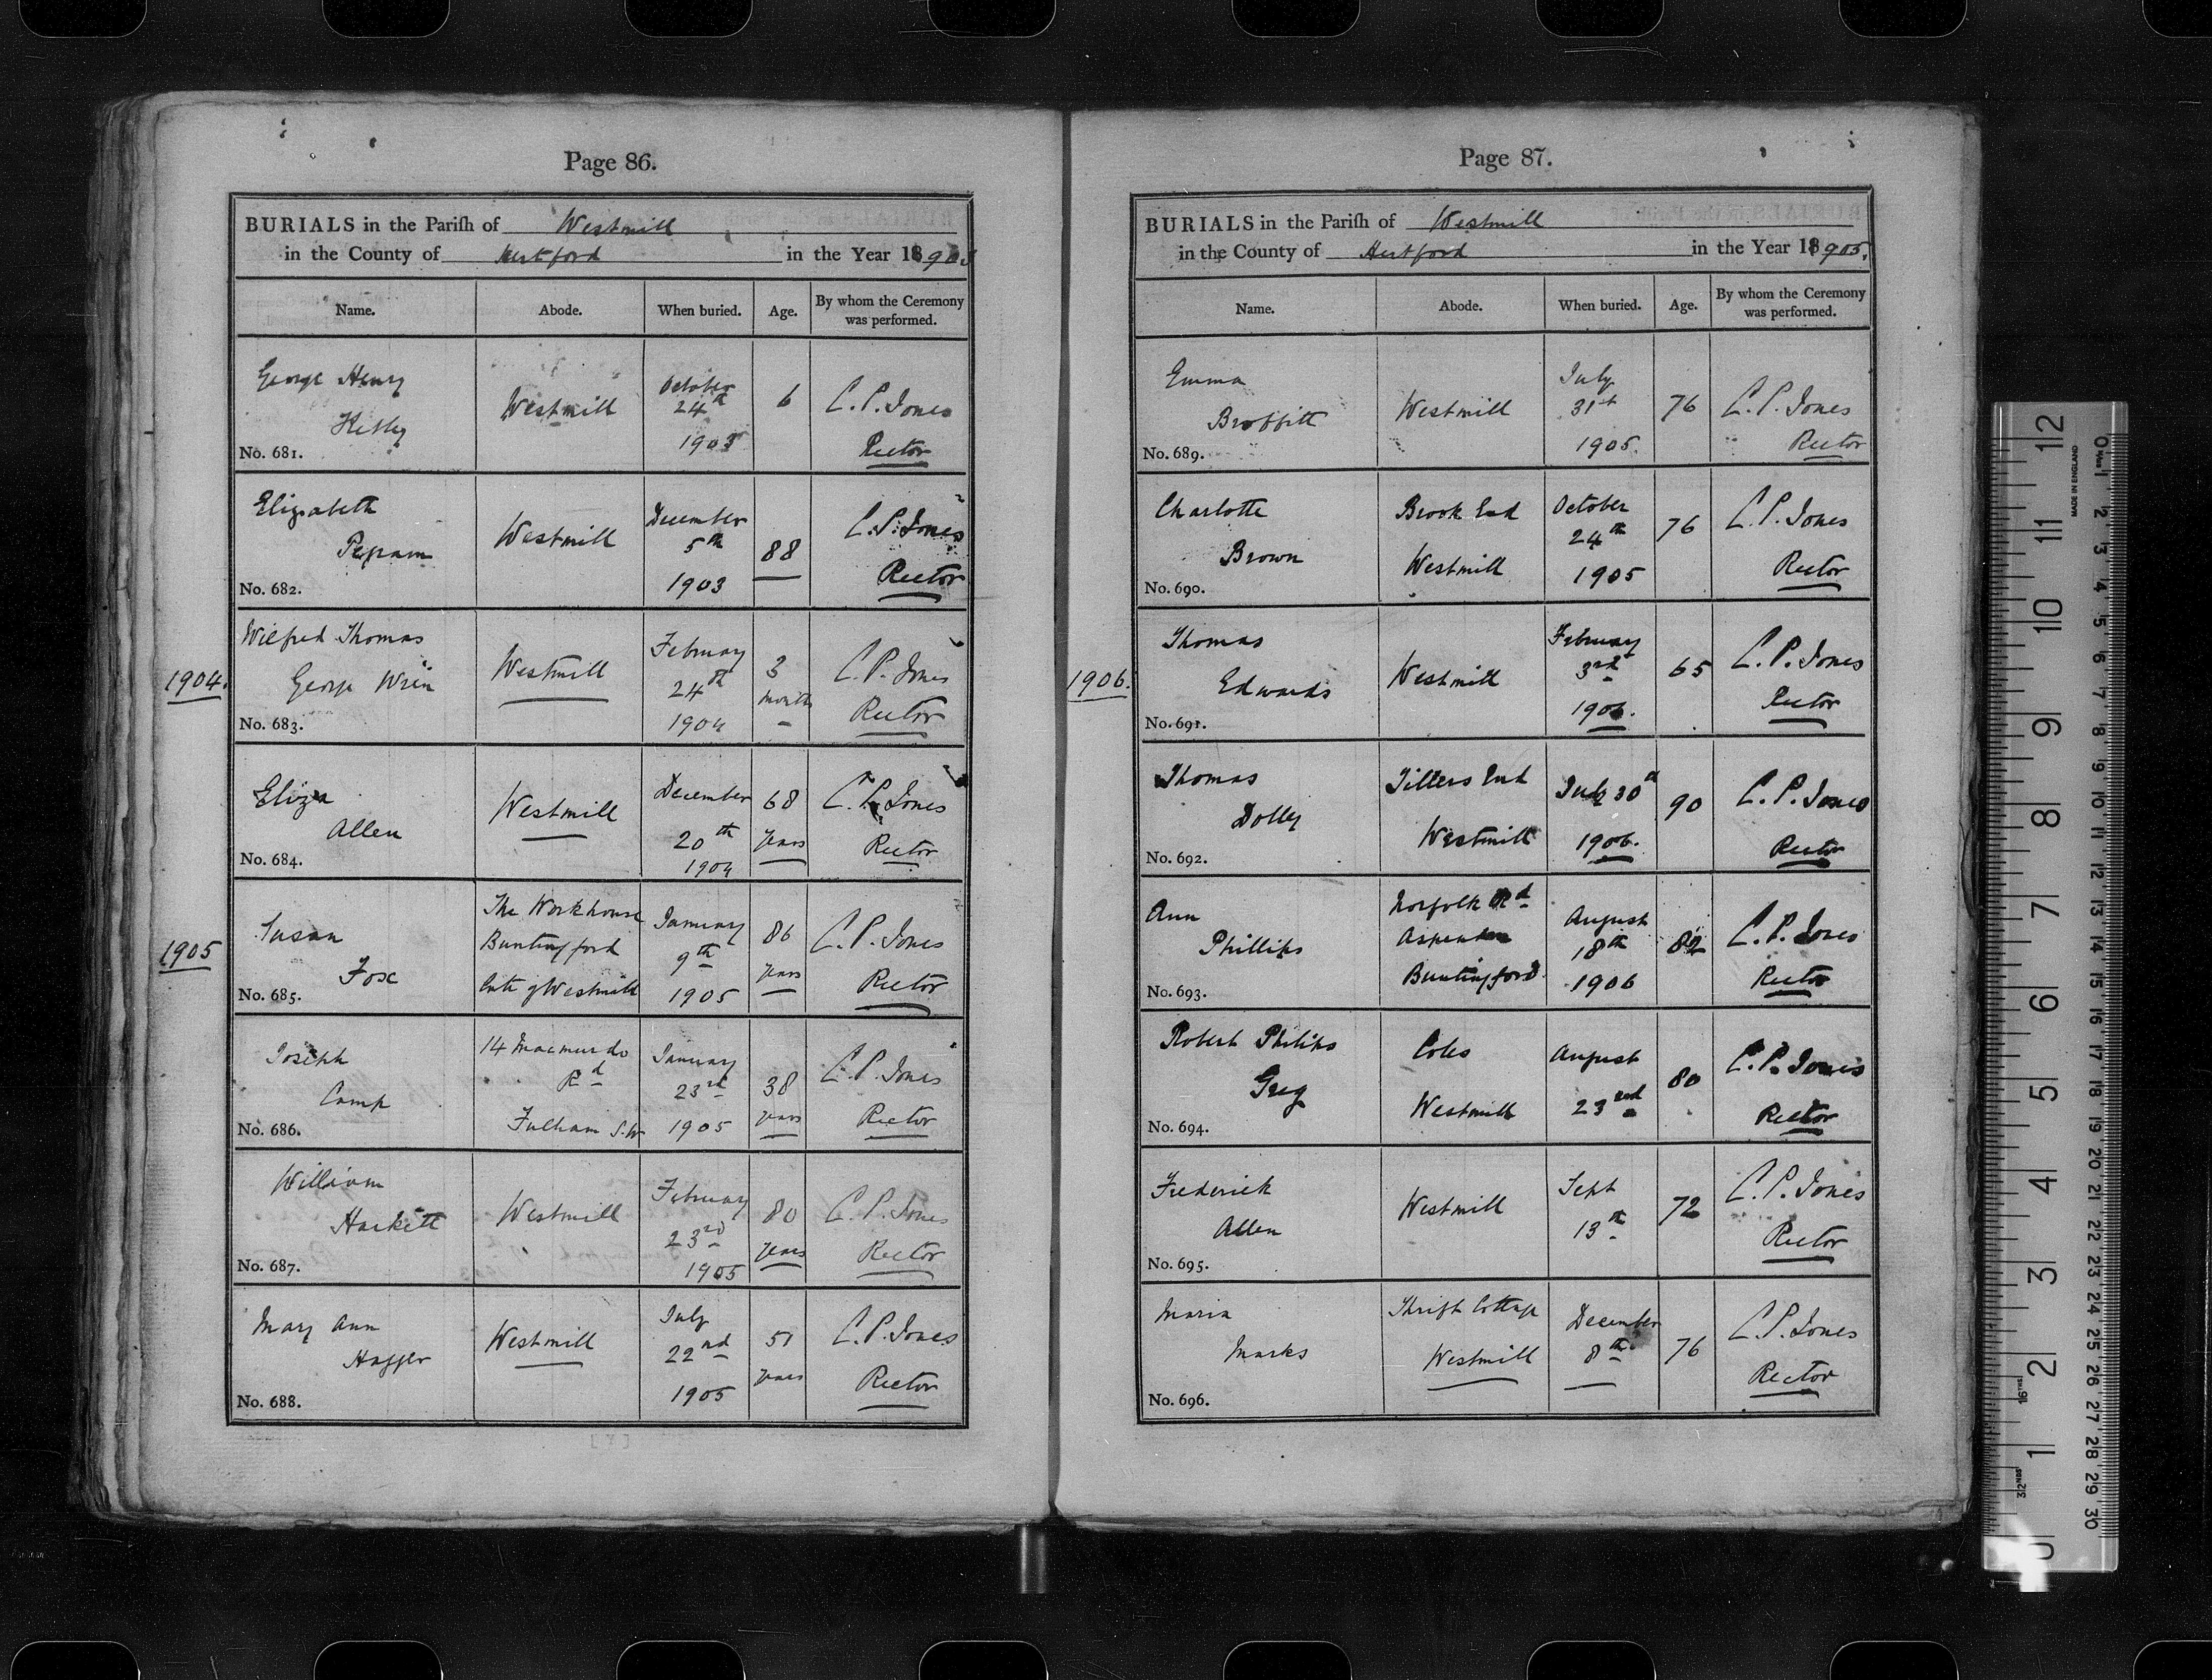 Page 86.
BURIALS in the Parish of Westmill
in the County of Hertford in the Year 1903
Name. Abode. When buried. Age. By whom the Ceremony was performed.
George Henry
Westmill
October
24th
1903
6
C. P. Jones
Rector
No. 681.
Elizabeth
Pegram
Westmill
December
5th
1903
88
C. P. Jones
Rector
No. 682.
1904.
Wilfred Thomas
George Wren
Westmill
February
24th
1904
3
months
C. P. Jones
Rector
No. 683.
Eliza
Allen
Westmill
December
20th
1904
68
years
C. P. Jones
Rector
No. 684.
1905
Susan
Fox
The Workhouse
Buntingford
late of Westmill
January
9th
1905
86
years
C. P. Jones
Rector
No. 685.
Joseph
Camp
14 Macmurdo
Rd
Fulham S.W
January
23rd
1905
38
years
C. P. Jones
Rector
No. 686.
William
Hackett
Westmill
February
23rd
1905
80
years
C. P. Jones
Rector
No. 687.
Mary Ann
Hagger
Westmill
July
22nd
1905
51
years
C. P. Jones
Rector
No. 688.
Page 87.
BURIALS in the Parish of Westmill
in the County of Hertford in the Year 1905.
Name. Abode. When buried. Age. By whom the Ceremony was performed.
Emma
Broffitt
Westmill
July
31st
1905.
76
C. P. Jones
Rector
No. 689.
Charlotte
Brown
Brook End
Westmill
October
24th
1905
76
C. P. Jones
Rector
No. 690.
1906.
Thomas
Edwards
Westmill
February
3rd
1906.
65
C. P. Jones
Rector
No. 691.
Thomas
Dolly
Tillers End
Westmill
July 30th
1906.
90
C. P. Jones
Rector
No. 692.
Ann
Phillips
Norfolk Rd
Aspenden
Buntingford
August
18th
1906
82
C. P. Jones
Rector
No. 693.
Robert Philips
Greg
Coles
Westmill
August
23rd
80
C. P. Jones
Rector
No. 694.
Frederick
Allen
Westmill
Sept
13th
72
C. P. Jones
Rector
No. 695.
Maria
Marks
Thrift Cottage
Westmill
December
8th
76
C. P. Jones
Rector
No. 696.
MADE IN ENGLAND
12 11 10 9 8 7 6 5 4 3 2 1 0
0 1 2 3 4 5 6 7 8 9 10 11 12 13 14 15 16 17 18 19 20 21 22 23 24 25 26 27 28 29 30
16THS
32NDS